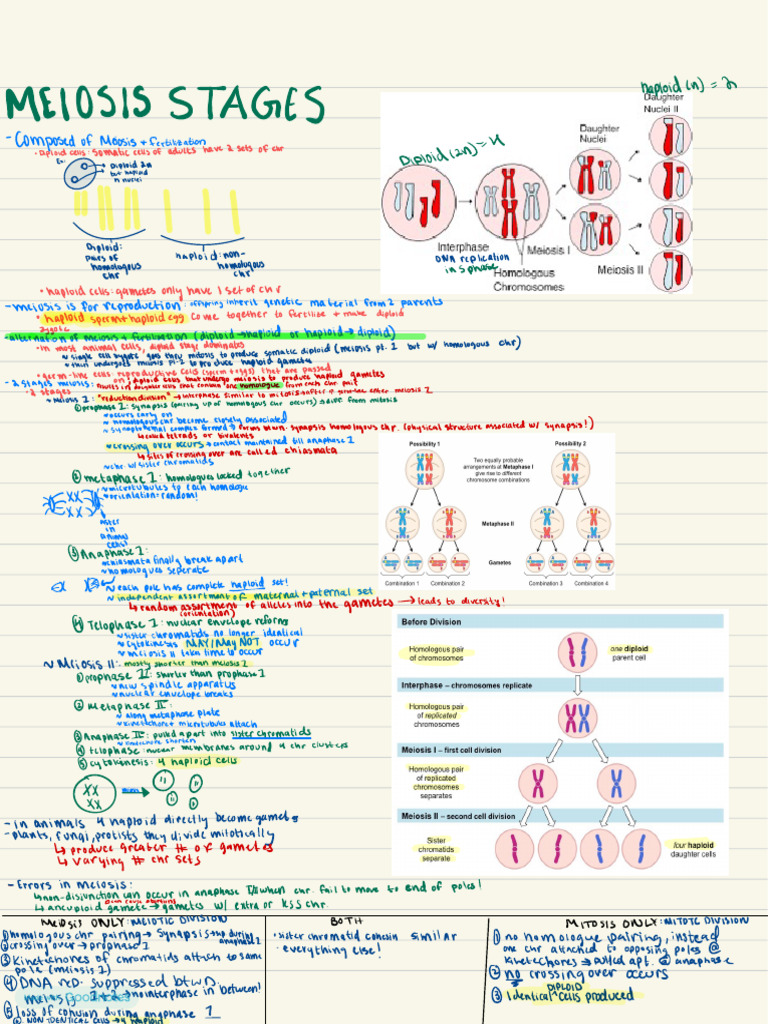 haploid (n) = 2
MEIOSIS STAGES
Daughter
Nuclei II
- Composed of Meiosis + fertilization
Daughter
Nuclei
• Diploid cells: somatic cells of adults have 2 sets of chr
Diploid (2n) = 4
Ex:
Diploid 2n
but haploid
n nuclei
Interphase
DNA replication
in S phase
Meiosis I
Homologous
Chromosomes
Meiosis II
Diploid:
pairs of
homologous
chr
haploid: non-
homologous
chr
• haploid cells: gametes only have 1 set of chr
- meiosis is for reproduction: offspring inherit genetic material from 2 parents
• haploid sperm + haploid egg come together to fertilize + make diploid
zygote
- alternation of meiosis + fertilization (diploid → haploid or haploid → diploid)
• In most animal cells, diploid stage dominates
~ single cell zygote goes thru mitosis to produce somatic diploid (meiosis pt. 1 but w/ homologous chr)
~ then undergoes meiosis pt. 2 to produce haploid gametes
• germ-line cells: reproductive cells (sperm + eggs) that are passed
on; diploid cells that undergo meiosis to produce haploid gametes
- 2 stages meiosis: results in daughter cells that contain one homologue from each chr pair
• 2 stages
~ meiosis I: "reduction division" → interphase similar to mitosis
① prophase I: synapsis (pairing up of homologous chr occurs) → diff from mitosis
~ occurs early on
~ homologous chr become closely associated
~ synaptonemal complex formed → forms btwn. synapsis homologous chr. (physical structure associated w/ synapsis!)
↳ called tetrads or bivalents
~ crossing over occurs → contact maintained till anaphase I
↳ sites of crossing over are called chiasmata
~ chr. w/ sister chromatids
② metaphase I: homologues locked together
~ microtubules to each homologue
~ orientation = random!
aster
in
animal
cells!
Possibility 1
Possibility 2
Two equally probable
arrangements at Metaphase I
give rise to different
chromosome combinations
Metaphase II
Gametes
Combination 1
Combination 2
Combination 3
Combination 4
③ Anaphase I:
~ chiasmata finally break apart
~ homologues seperate
~ each pole has complete haploid set!
~ independent assortment of maternal + paternal set
↳ random assortment of alleles into the gametes → leads to diversity!
(orientation)
④ Telophase I: nuclear envelope reforms
~ sister chromatids no longer identical
~ cytokinesis MAY/MAY NOT occur
~ meiosis II take time to occur
~ Meiosis II: mostly shorter than meiosis I
① prophase II: shorter than prophase I
~ new spindle apparatus
~ nuclear envelope breaks
② Metaphase II:
~ along metaphase plate
~ kinetochore + microtubules attach
③ Anaphase II: pulled apart into sister chromatids
~ kinetochore shortens
④ telophase: nuclear membranes around 4 chr clusters
⑤ cytokinesis: 4 haploid cells
Before Division
Homologous pair
of chromosomes
one diploid
parent cell
Interphase – chromosomes replicate
Homologous pair
of replicated
chromosomes
Meiosis I – first cell division
Homologous pair
of replicated
chromosomes
separates
Meiosis II – second cell division
Sister
chromatids
separate
four haploid
daughter cells
- in animals 4 haploid directly become gametes
- plants, fungi, protists they divide mitotically
↳ produce greater # of gametes
↳ varying # chr sets
- Errors in meiosis:
↳ non-disjunction can occur in anaphase I/II when chr. fail to move to end of poles!
↳ aneuploid gamete → gametes w/ extra or less chr.
MEIOSIS ONLY: MEIOTIC DIVISION
① homologous chr pairing → synapsis
② crossing over → prophase I
③ Kinetechores of chromatids attach to same
pole (meiosis I)
④ DNA rep. suppressed btwn.
meiosis 1 + 2 → no interphase in between!
⑤ loss of cohesion during anaphase 1
⑥ NON IDENTICAL CELLS → 4 haploid
BOTH
• sister chromatid cohesin similar
• everything else!
MITOSIS ONLY: MITOTIC DIVISION
① no homologue pairing, instead
one chr attached to opposing poles @
kinetechores → pulled apt. @ anaphase
② no crossing over occurs
③ Identical DIPLOID cells produced